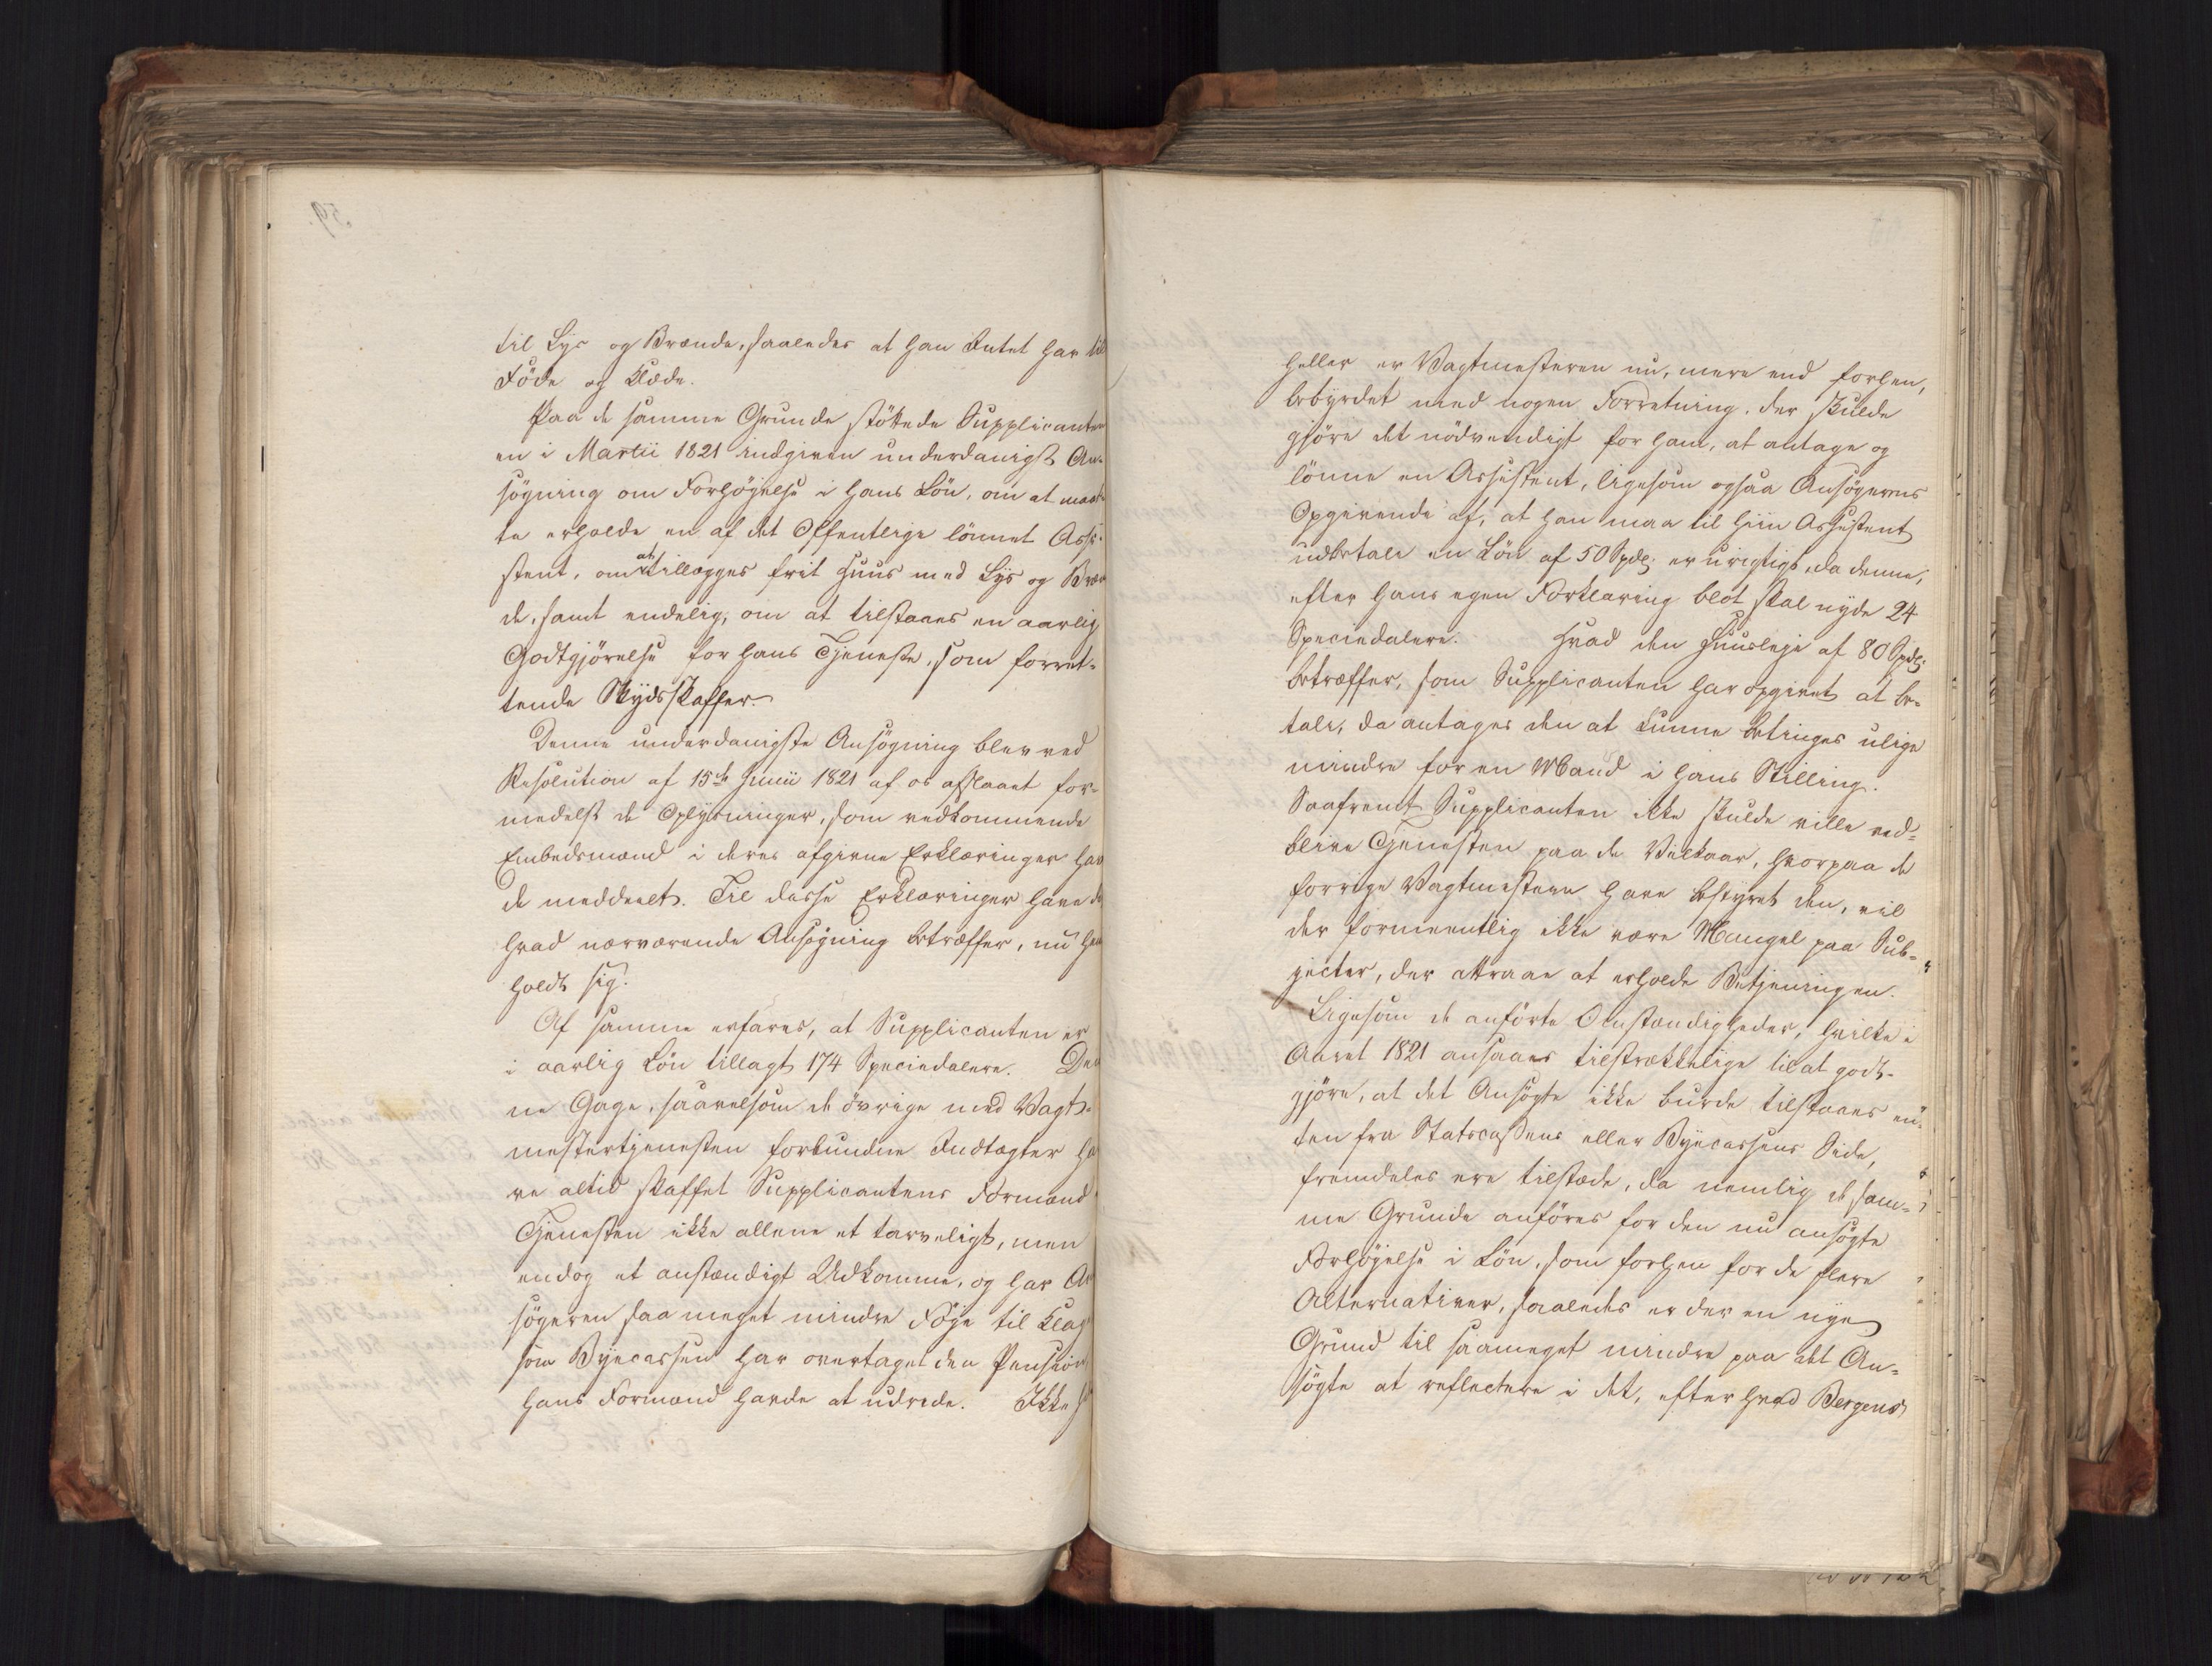 til Lys og Brænde, saaledes at han Intet har til
Føde og Klæde.
Paa de samme Grunde støttede Supplicanten
en i Martii 1821 indgiven underdanigst An-
søgning om Forhøyelse i hans Løn, om at maat
te erholde en af det Offentlige lønnet Assi-
stent, om at tillægges frit Huus med Lys og Bræn
de, samt endelig, om at tilstaaes en aarlig
Godtgjørelse for hans Tjeneste, som forret-
tende Skydsskaffer.
Denne underdanigste Ansøgning blev ved
Resolution af 15de Junii 1821 af os afslaaet for-
medelst de Oplysninger, som vedkommende
Embedsmænd i deres afgivne Erklæringer hav
de meddeelt. Til disse Erklæringer have de
hvad nærværende Ansøgning betræffer, nu hen
holdt sig.
Af samme erfares, at Supplicanten er
i aarlig Løn tillagt 174 Speciedalere. Den
ne Gage, saavelsom de øvrige med Vagt-
mestertjenesten forbundne Indtægter ha
ve altid skaffet Supplicantens Formænd
Tjenesten ikke allene et tarveligt, men
endog et anstændigt Udkomme, og har An
søgeren saa meget mindre Føje til Klag
som Byecassen har overtaget den Pension
hans Formænd havde at udrede. Ikke
heller er Vagtmesteren nu, mere end forhen,
bebyrdet med nogen Forretning, der skulde
gjøre det nødvendigt for ham, at antage og
lønne en Assistent, ligesom ogsaa Ansøgerens
Opgivende af, at han maa til hiin Assistent
udbetale en Løn af 50 Spdlr er urigtigt, da denne,
efter hans egen Forklaring blot skal nyde 24
Speciedalere. Hvad den Huusleje af 80 Spdlr
betræffer, som Supplicanten har opgivet at be-
tale, da antages den at kunne betinges ulige
mindre for en Mand i hans Stilling.
Saafremt Supplicanten ikke skulde ville ved-
blive Tjenesten paa de Vilkaar, hvorpaa de
forrige Vagtmestere have bestyret den, vil
der formeentlig ikke være Mangel paa Sub-
jecter, der attraae at erholde Betjeningen.
Ligesom de anførte Omstændigheder, hvilke i
Aaret 1821 ansaaes tilstrækkelige til at godt-
gjøre, at det Ansøgte ikke burde tilstaaes en-
ten fra Statscassens eller Byecassens Side,
fremdeles ere tilstæde, da nemlig de sam-
me Grunde anføres for den nu ansøgte
Forhøjelse i Løn, som forhen for de flere
Alternativer, saaledes er der en nye
Grund til saameget mindre paa det An-
søgte at reflectere i det, efter hvad Bergens